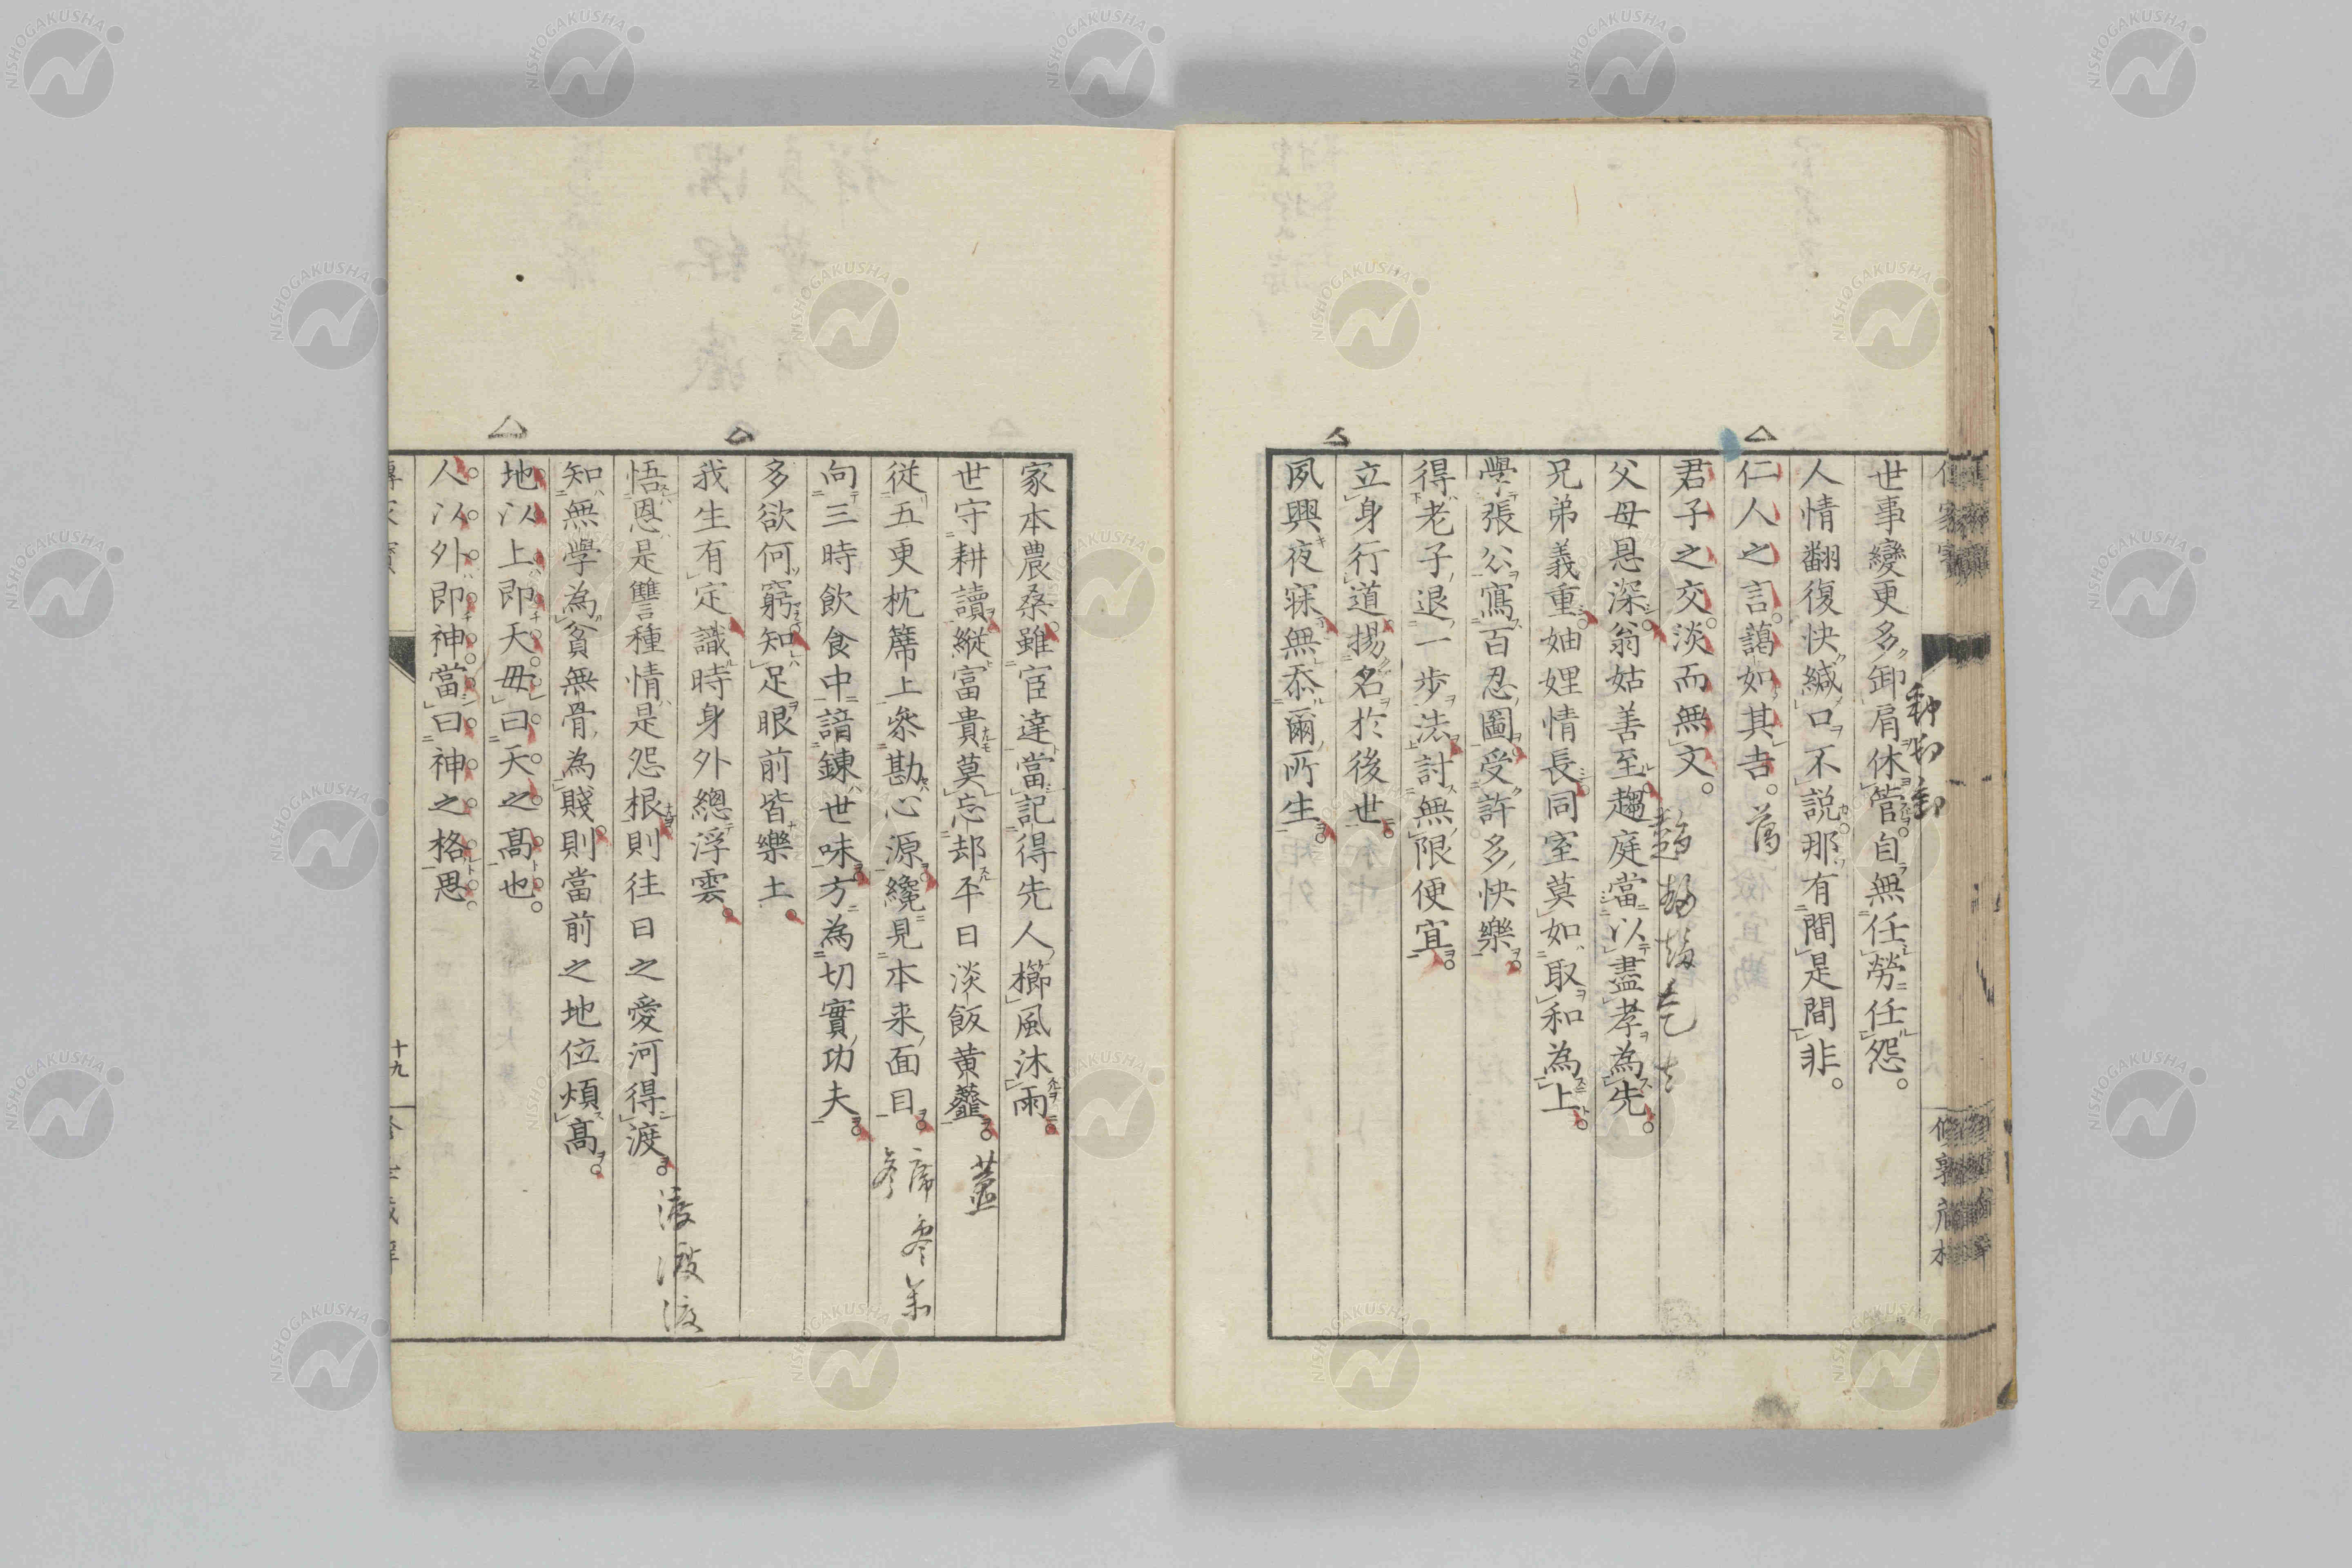 世事變更多卸肩休管自無任勞任怨。
人情翻復快緘口不説那有間是間非。
仁人之言。藹如其吉。
君子之交。淡而無文。
父母恩深翁姑善至趨庭當以盡孝為先。
兄弟義重妯娌情長同室莫如取和為上。
學張公寫百忍圖受許多快樂。
得老子退一步法討無限便宜。
立身行道揚名於後世。
夙興夜寐無忝爾所生。
家本農桑雖宦達當記得先人櫛風沐雨。
世守耕讀縱富貴莫忘却平日淡飯黄虀。
從五更枕簟上叅勘心源纔見本来面目。
向三時飲食中諳錬世味方為切實功夫。
多欲何窮知足眼前皆樂土。
我生有定識時身外總浮雲。
悟恩是讐種情是怨根則往日之愛河得渡。
知無學為貧無骨為賤則當前之地位煩髙。
地以上即天毋曰天之髙也。
人以外即神當曰神之格思。
十九
NISHOGAKUSHA